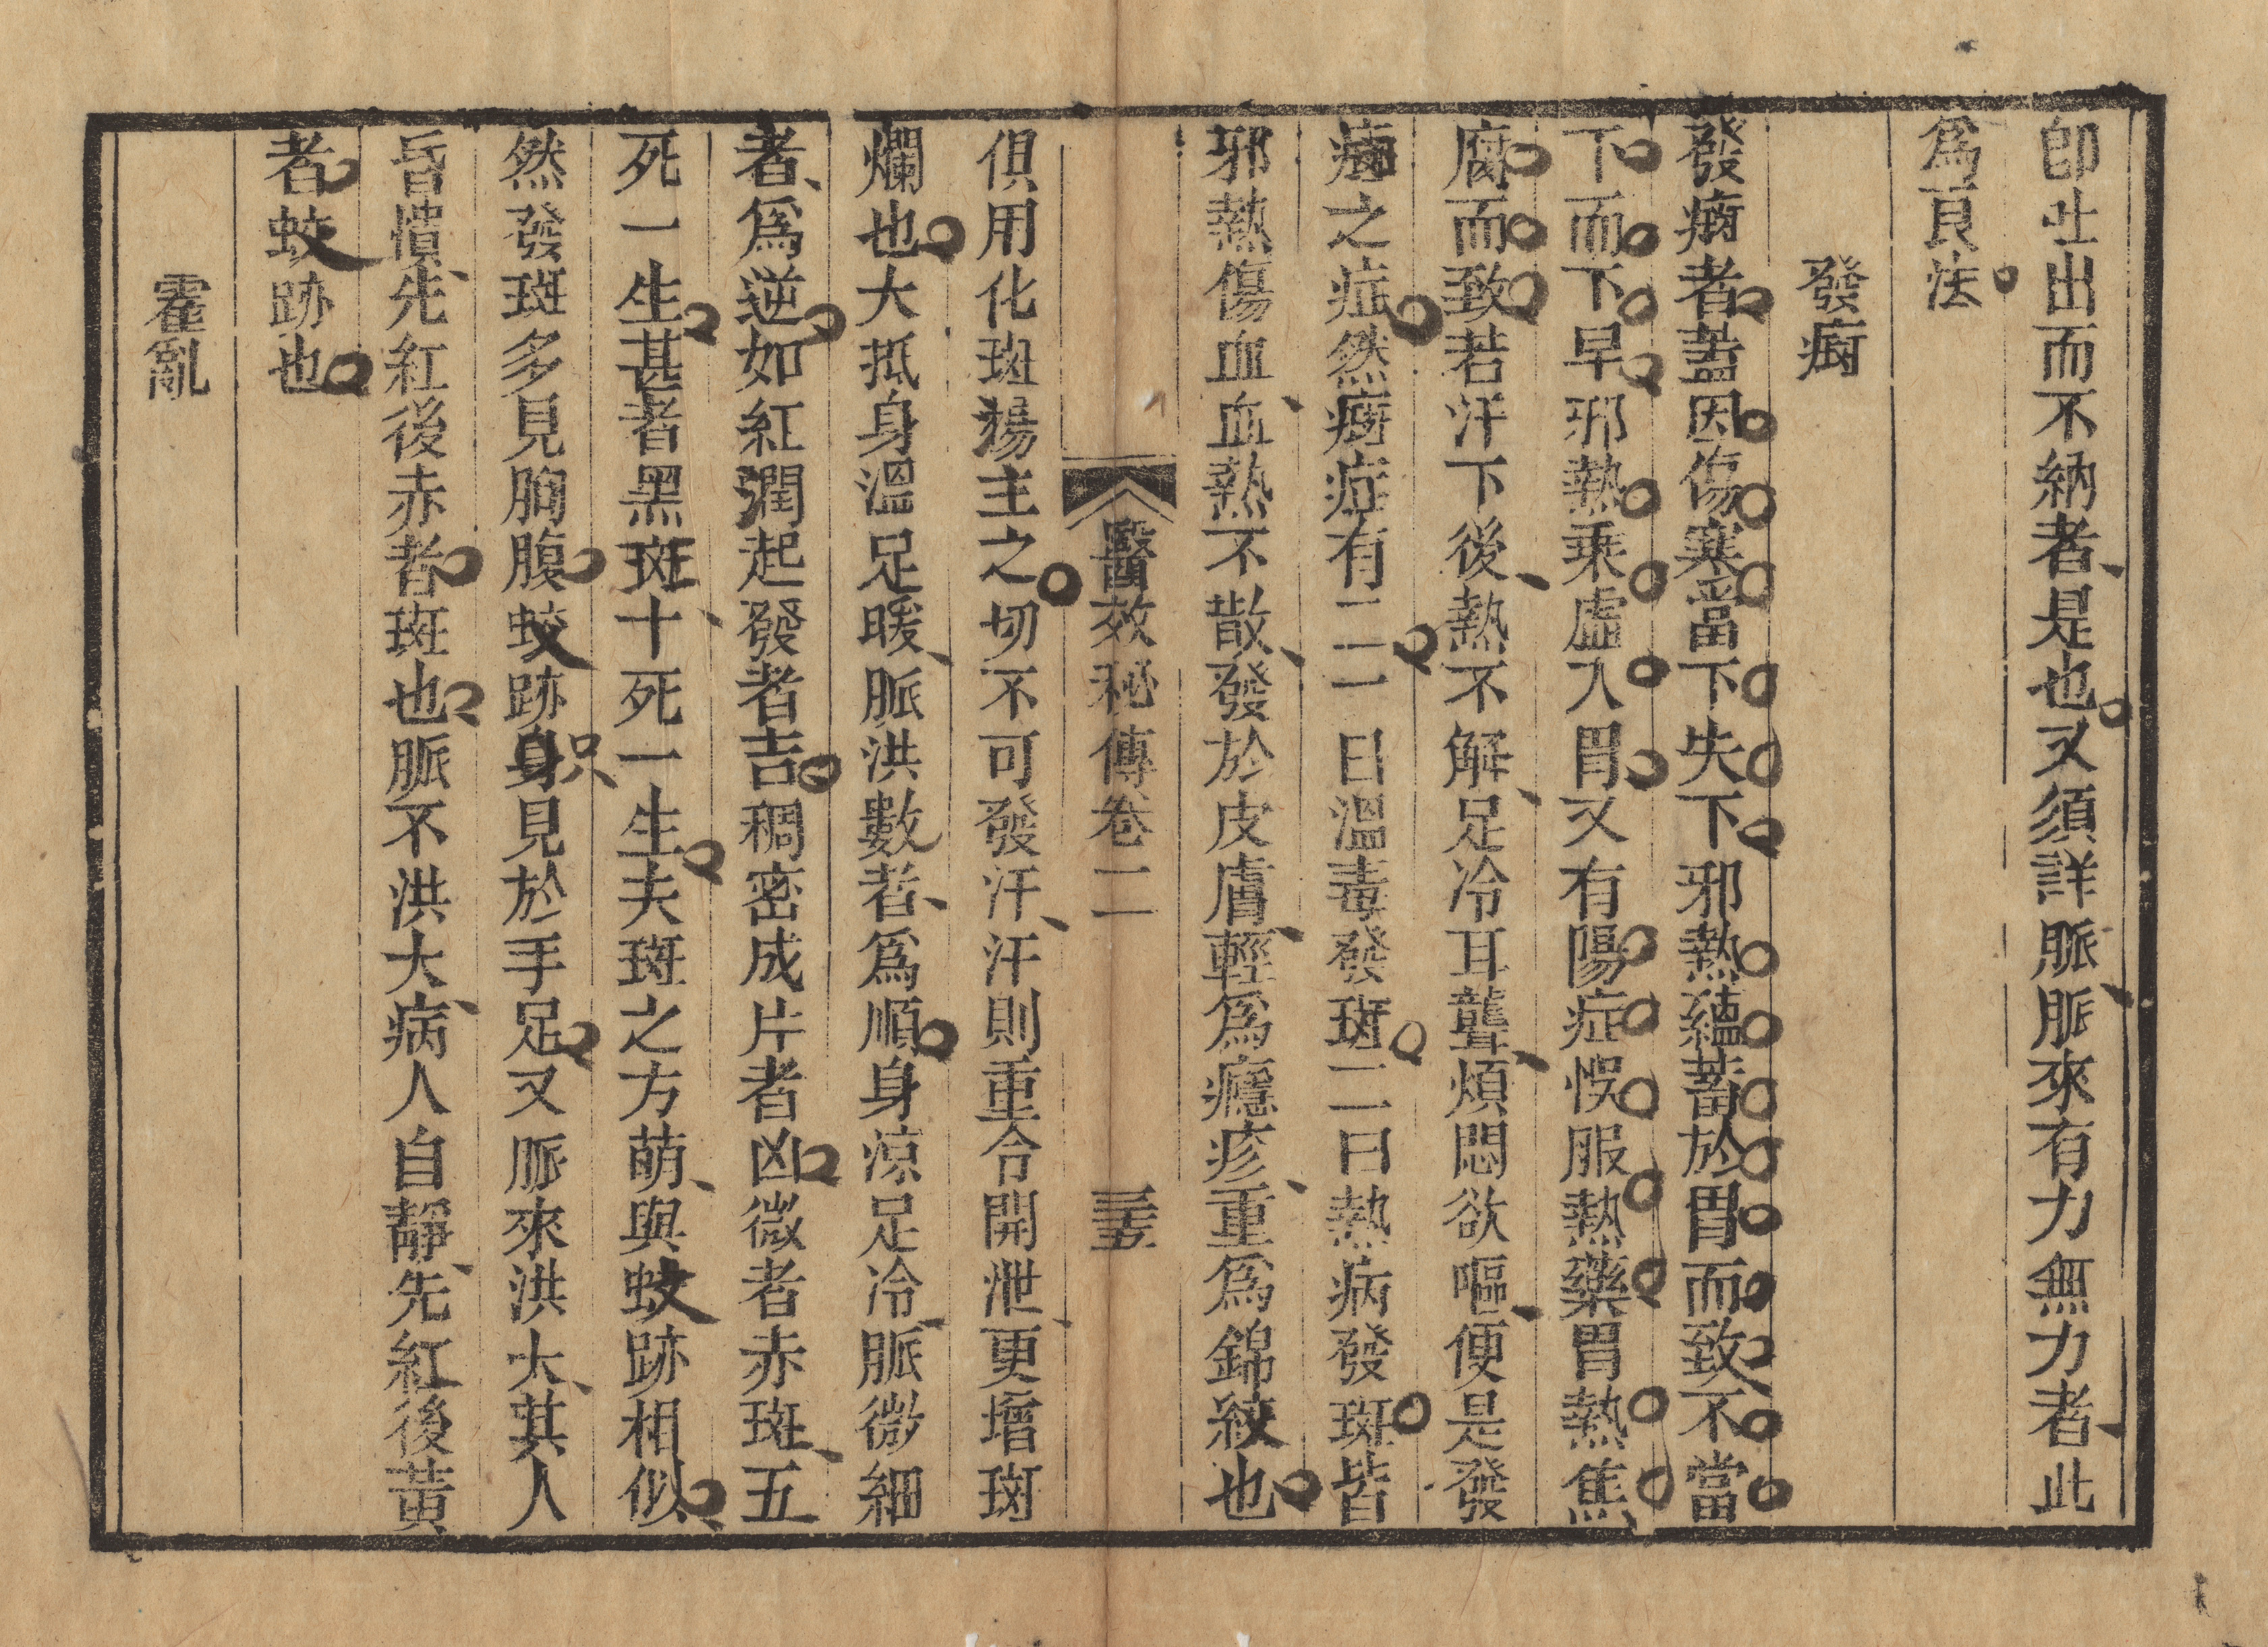 卽吐出而不納者是也又須詳脈脈來有力無力者此
爲良法
發癍
發癍者蓋因傷寒當下失下邪熱蘊蓄於胃而致不當
下而下早邪熱乘虛入胃又有陽症悞服熱藥胃熱焦
腐而致若汗下後熱不解足冷耳聾煩悶欲嘔便是發
癍之症然癍症有二一曰溫毒發斑二曰熱病發斑皆
邪熱傷血血熱不散發於皮膚輕爲癮疹重爲錦紋也
醫效秘傳卷二
三五
俱用化斑湯主之切不可發汗汗則重令開泄更增斑
爛也大抵身溫足暖脈洪數者爲順身涼足冷脈微細
者爲逆如紅潤起發者吉稠密成片者凶微者赤斑五
死一生甚者黑斑十死一生夫斑之方萌與蚊跡相似
然發斑多見胸腹蚊跡只身見於手足又脈來洪大其人
昏憒先紅後赤者斑也脈不洪大病人自靜先紅後黃
者蚊跡也
霍亂